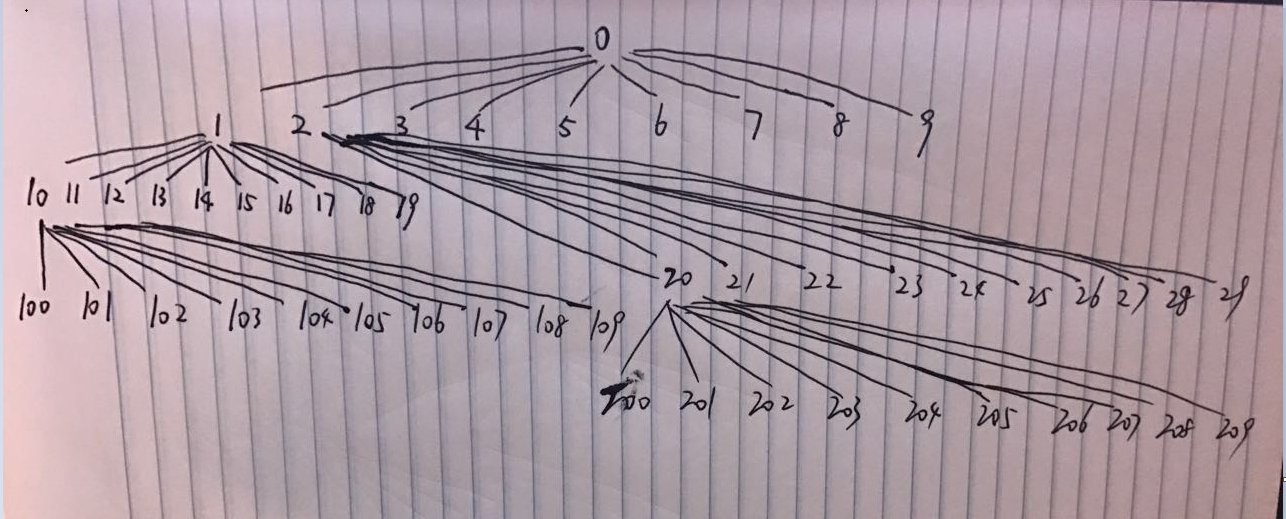 0
1 2 3 4 5 6 7 8 9
10 11 12 13 14 15 16 17 18 19
20 21 22 23 24 25 26 27 28 29
100 101 102 103 104 105 106 107 108 109
200 201 202 203 204 205 206 207 208 209